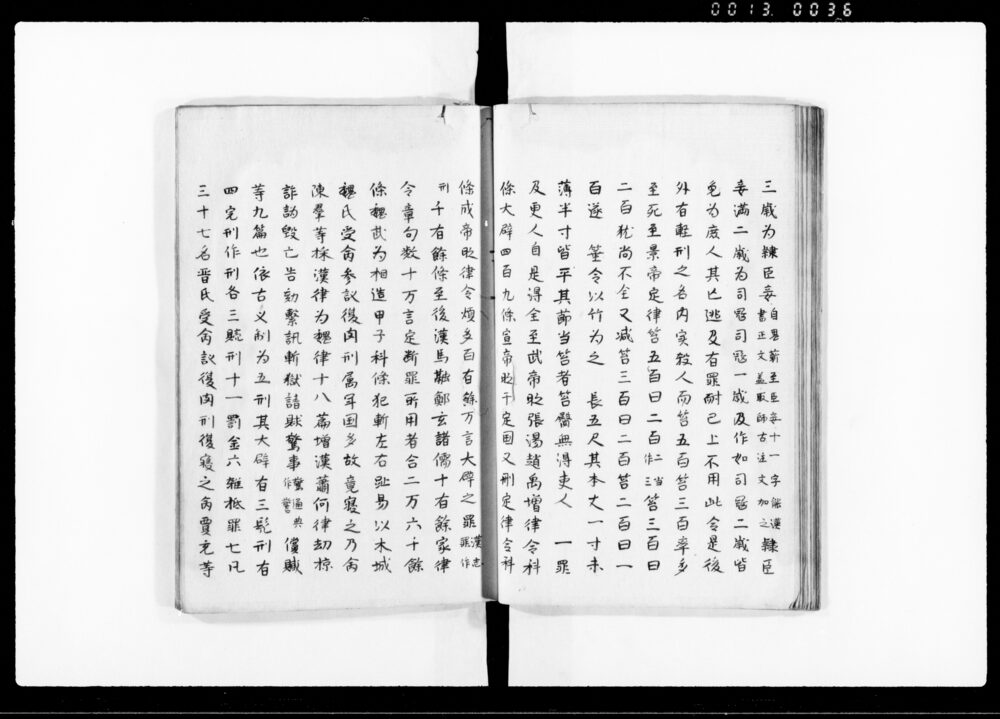 0013. 0036
三歳为隸臣妾自畧薪至臣妾十一字能漢書正文蓋取師古注文加之隸臣
妾満二歳为司寇司寇一歳及作如司寇二歳皆
免为庶人其亡逃及有罪耐已上不用此令是後
外有軽刑之名内実殺人而笞五百笞三百率多
至死至景帝定律笞五百曰二百二当作三笞三百曰
二百犹尚不全又减笞三百曰二百笞二百曰一
百遂 箠令以竹为之 長五尺其本大一寸末
薄半寸皆平其節当笞者笞臀無得吏人 一罪
及更人自是得全至武帝时張湯趙禹增律令科
條大辟四百九條宣帝时于定国又刑定律令科
條成帝时律令煩多百有餘万言大辟之罪漢志罪作刑
千有餘條至後漢馬融鄭玄諸儒十有餘家律
令章句数十万言定断罪所用者合二万六千餘
條魏武为相造甲子科條犯斬左右趾易以木城
魏氏受禽参議復肉刑属军国多故竟寝之乃禽
陳羣等採漢律为魏律十八篇增漢蕭何律劫椋
詐譌毁亡告劾繫訊斬獄請賕驚事驚通典作警償賊
等九篇也依古义制为五刑其大辟有三髡刑有
四完刑作刑各三贖刑十一罰金六雜抵罪七凡
三十七名晋氏受禽議復肉刑復寝之禽賈充等